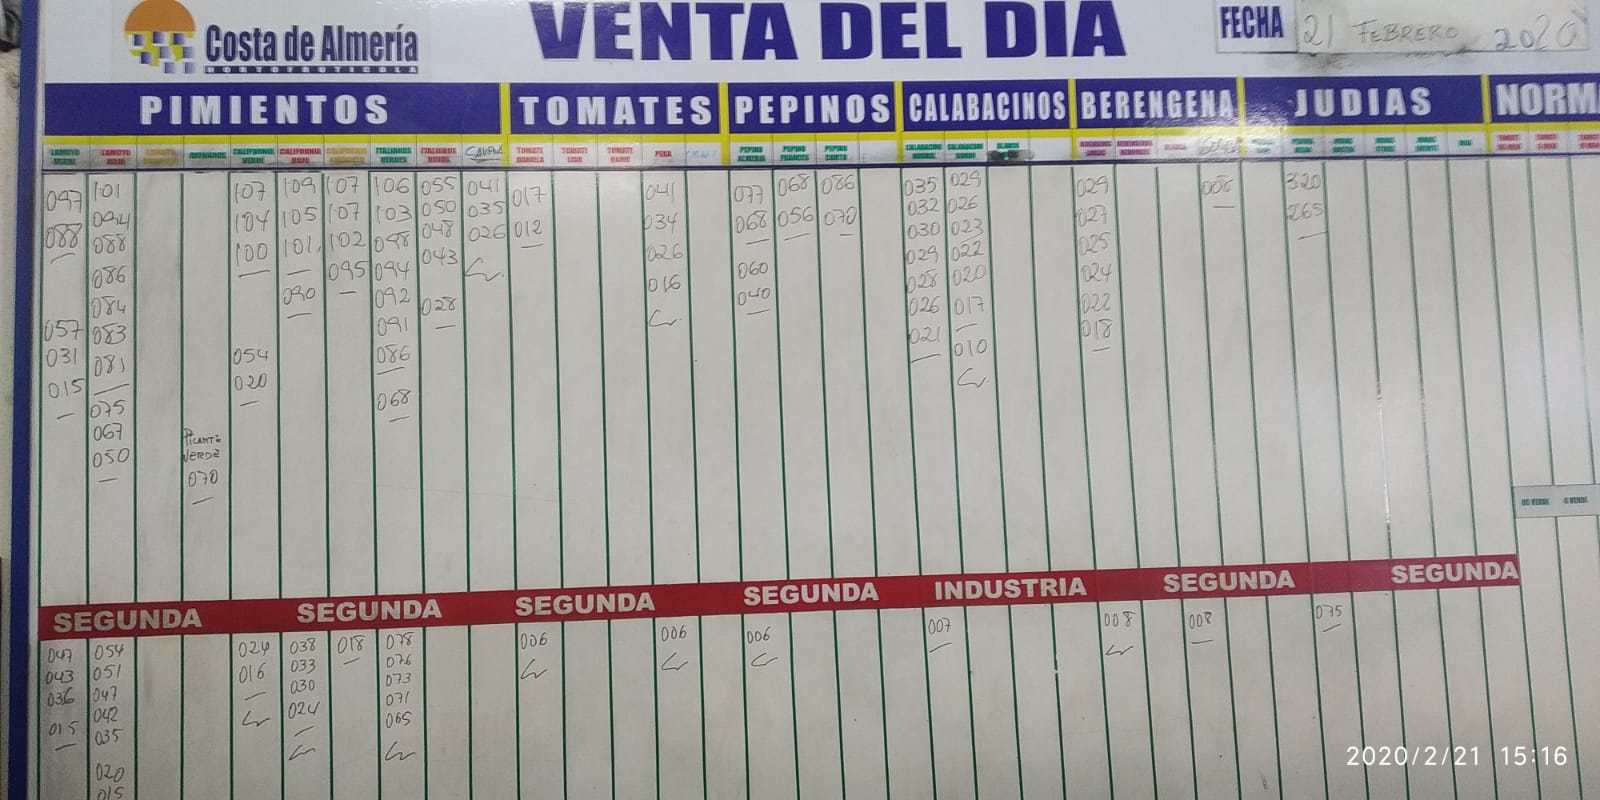 Costa de Almería
HORTOFRUTICOLA
VENTA DEL DIA
FECHA 21 FEBRERO 2020
PIMIENTOS TOMATES PEPINOS CALABACINOS BERENGENA JUDIAS NORM
LAMOYO VERDE LAMOYO ROJO CALIFORNIA VERDE CALIFORNIA ROJO CALIFORNIA ITALIANOS VERDES ITALIANOS ROJOS TOMATE DANIELA TOMATE LISO TOMATE RAMO PERA PEPINO ALMERIA PEPINO FRANCES PEPINO CORTO
097 101 107 109 107 106 055 041 017 041 077 068 086 035 029 029 008 320
088 094 104 105 107 103 050 035 012 034 068 056 070 032 026 027 265
088 100 101 102 098 048 026 026 060 030 023 025
086 090 095 094 043 016 040 029 022 024
084 092 028 028 020 022
057 083 091 026 017 018
031 081 054 086 021 010
015 075 020 068
067 PICANTE
050 VERDE
070
SEGUNDA SEGUNDA SEGUNDA SEGUNDA INDUSTRIA SEGUNDA SEGUNDA
047 054 024 038 018 078 006 006 006 007 008 008 075
043 051 016 033 076
036 047 030 073
015 042 024 071
035 065
020
015
2020/2/21 15:16